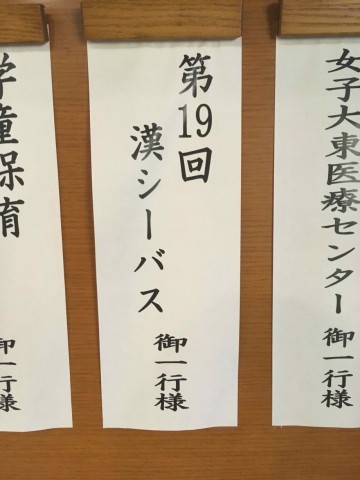 女子大東医療センター 御一行様
第19回
漢シーバス
御一行様
学童保育
御一行様